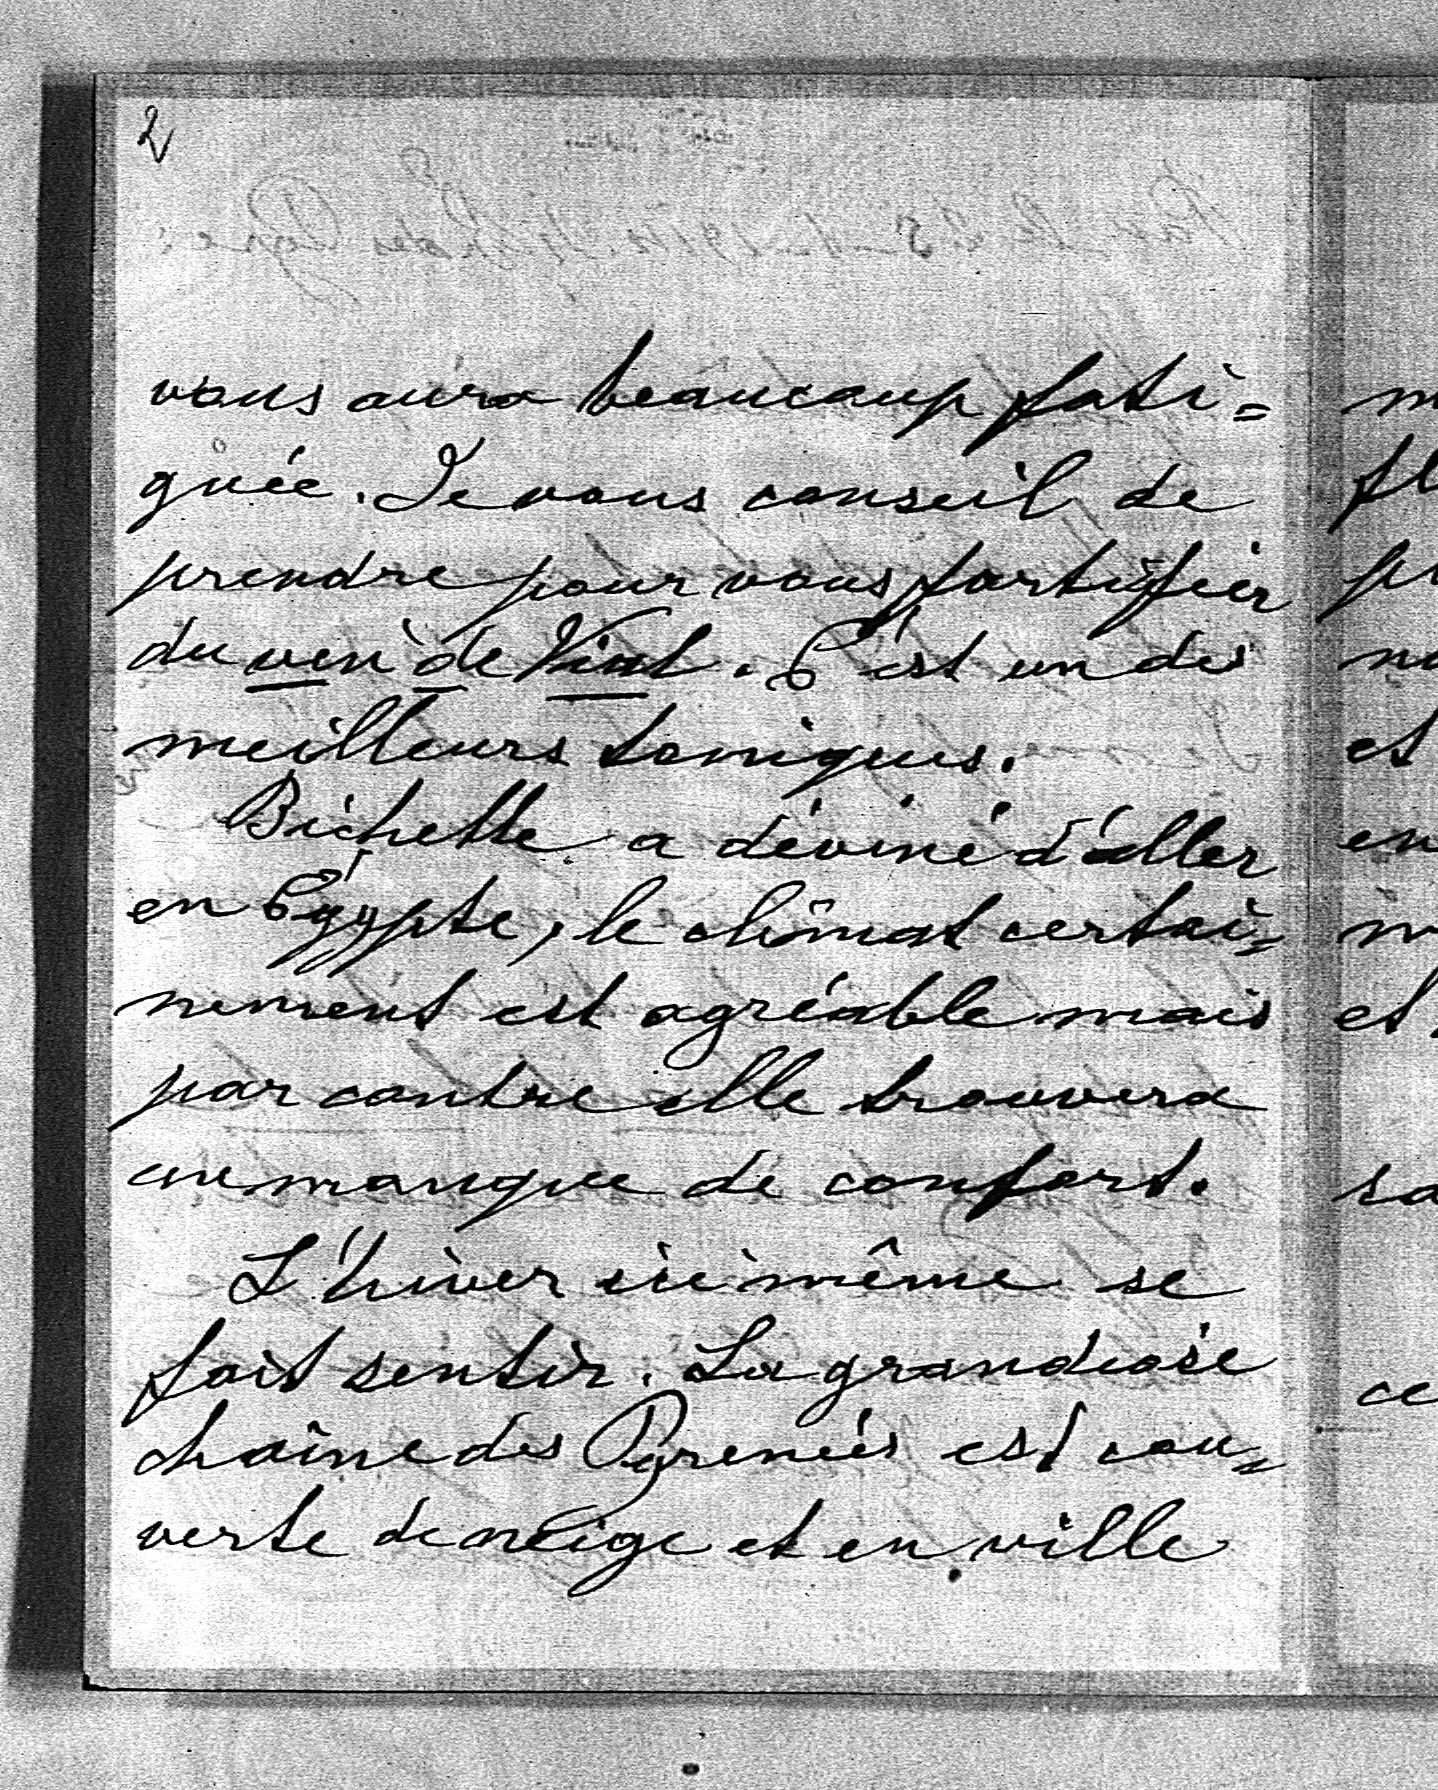 2
vous aura beaucoup fati=
guée. Je vous conseil de
prendre pour vous fortifier
du vin de Vial. C'est un des
meilleurs toniques.
Bichette a déviné d'aller
en Egypte, le climat certai=
nement est agréable mais
par contre elle trouvera
un manque de confort.
L'hiver ici même se
fait sentir. La grandiose
chaîne des Pyrenées est cou=
verte de neige et en ville